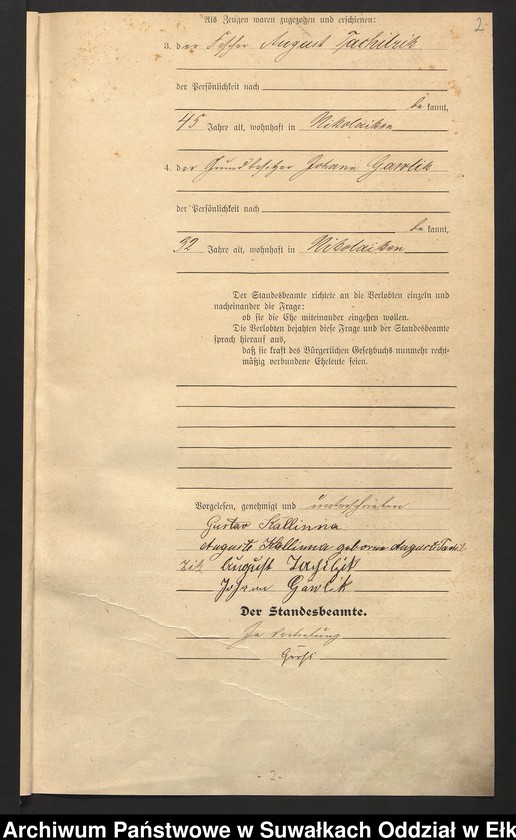 2
Als Zeugen waren zugezogen und erschienen:
3. der Fischer August Jachilzik
der Persönlichkeit nach
be kannt,
45 Jahre alt, wohnhaft in Nikolaiken
4. der Grundbesitzer Johann Gawlik
der Persönlichkeit nach
be kannt,
52 Jahre alt, wohnhaft in Nikolaiken
Der Standesbeamte richtete an die Verlobten einzeln und
nacheinander die Frage:
ob sie die Ehe miteinander eingehen wollen.
Die Verlobten bejahten diese Frage und der Standesbeamte
sprach hierauf aus,
daß sie kraft des Bürgerlichen Gesetzbuchs nunmehr recht-
mäßig verbundene Eheleute seien.
Vorgelesen, genehmigt und unterschrieben
Gustav Kallinna
Auguste Kallinna geborne
zik August
Johann Gawlik
Der Standesbeamte.
In Vertretung
- 2 -
Archiwum Państwowe w Suwałkach Oddział w Ełk